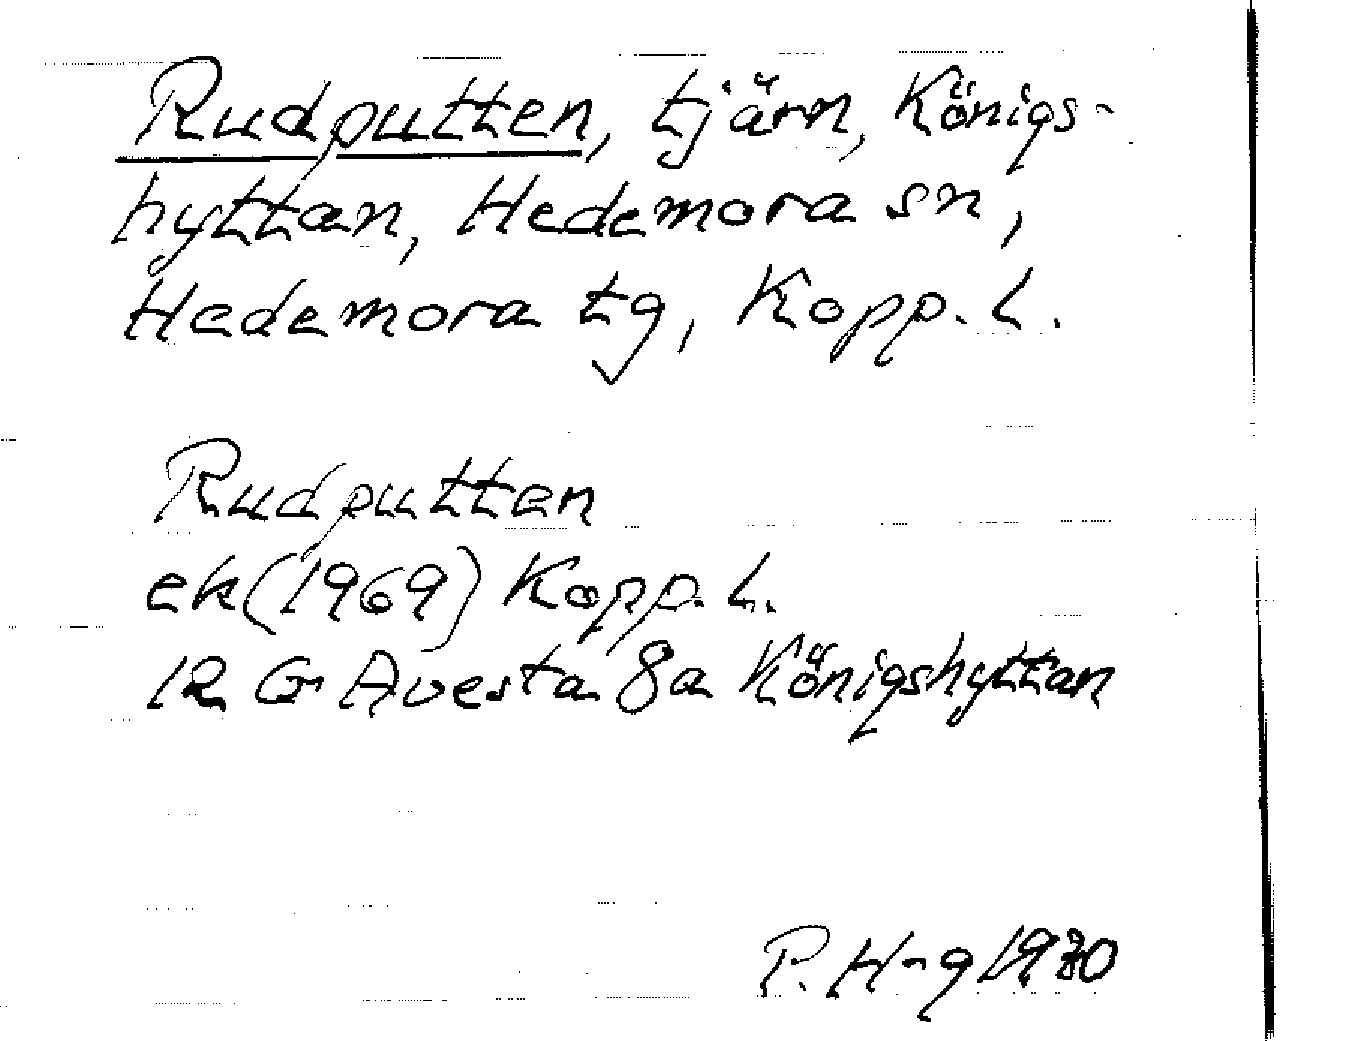 Rudputten, tjärn, Königs-
hyttan, Hedemora sn,
Hedemora tg, Kopp. l.
Rudputten
ek (1969) Kopp. L.
12 G Avesta 8a Königshyttan
P. H-g 1970